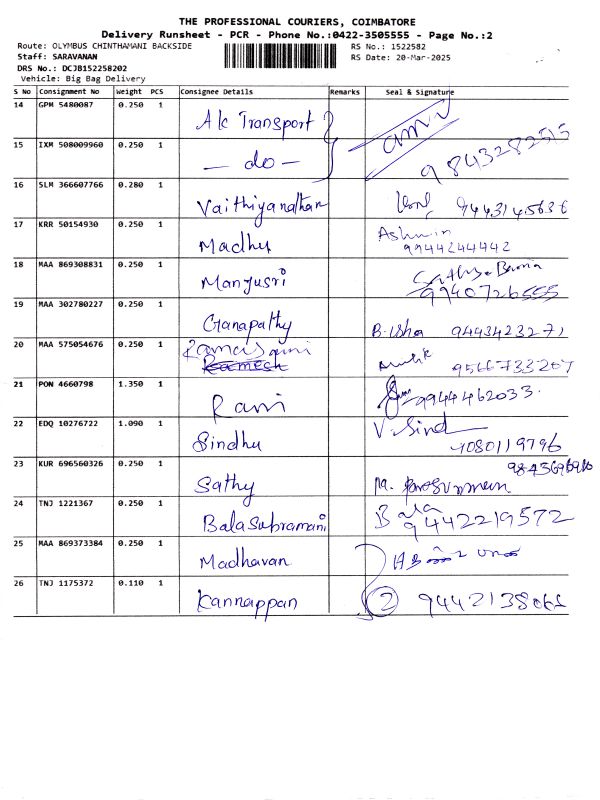 THE PROFESSIONAL COURIERS, COIMBATORE
Delivery Runsheet - PCR - Phone No.:0422-3505555 - Page No.:2
Route: OLYMBUS CHINTHAMANI BACKSIDE RS No.: 1522582
Staff: SARAVANAN RS Date: 20-Mar-2025
DRS No.: DCJB152258202
Vehicle: Big Bag Delivery
S No Consignment No Weight PCS Consignee Details Remarks Seal & Signature
14 GPM 5480087 0.250 1 A k Transport
15 IXM 508009960 0.250 1 - do - 9843282515
16 SLM 366607766 0.280 1 Vaithiyanathan 9443145636
17 KRR 50154930 0.250 1 Madhu Ashwin
9944244442
18 MAA 869308831 0.250 1 Manjusri
9940726555
19 MAA 302780227 0.250 1 Ganapathy B-Usha 9443423271
20 MAA 575054676 0.250 1 Ramasami
Ramesh 9566733207
21 PON 4660798 1.350 1 Rani 9944462033.
22 EDQ 10276722 1.090 1 Sindhu V-Sind
9080119796
23 KUR 696560326 0.250 1 Sathy
24 TNJ 1221367 0.250 1 BalaSubramani Bala
9442219572
25 MAA 869373384 0.250 1 Madhavan
26 TNJ 1175372 0.110 1 Kannappan 2